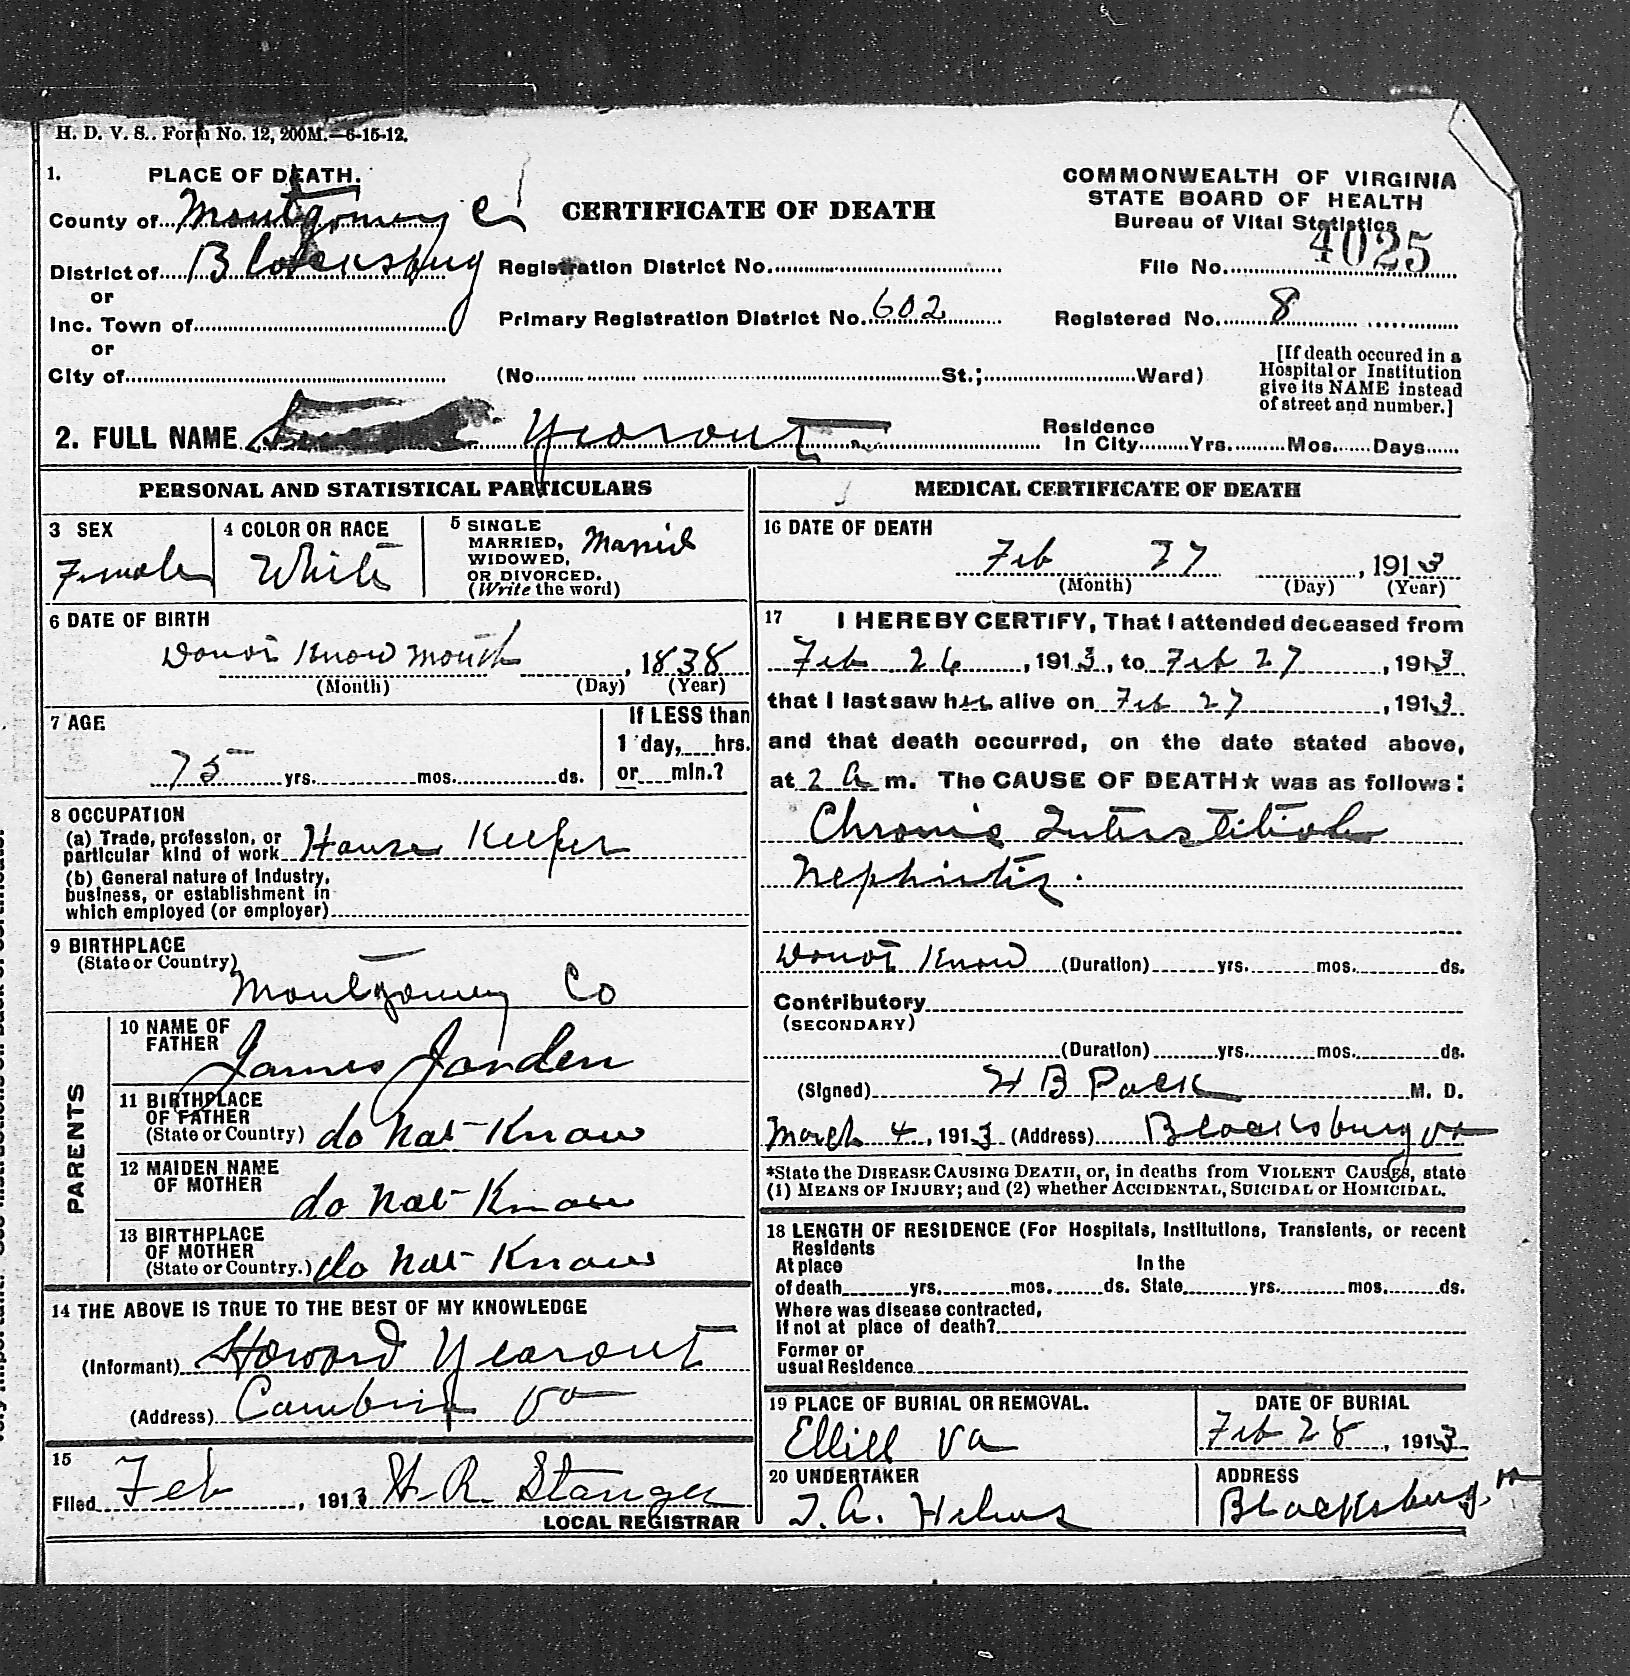 H. D. V. S.. Form No. 12, 200M.—6-15-12.
1. PLACE OF DEATH.
County of Montgomery Co
District of Blacksburg
or
Inc. Town of
or
City of
CERTIFICATE OF DEATH
Registration District No.
Primary Registration District No. 602
(No. St.; Ward)
COMMONWEALTH OF VIRGINIA
STATE BOARD OF HEALTH
Bureau of Vital Statistics
File No. 4025
Registered No. 8
[If death occured in a
Hospital or Institution
give its NAME instead
of street and number.]
2. FULL NAME Yearout
Residence
In City Yrs. Mos. Days
PERSONAL AND STATISTICAL PARTICULARS
3 SEX
Female
4 COLOR OR RACE
White
5 SINGLE
MARRIED,
WIDOWED,
OR DIVORCED.
(Write the word)
Married
6 DATE OF BIRTH
Donot Know month, 1838
(Month) (Day) (Year)
7 AGE
75 yrs. mos. ds.
If LESS than
1 day, hrs.
or min.?
8 OCCUPATION
(a) Trade, profession, or
particular kind of work House Keeper
(b) General nature of Industry,
business, or establishment in
which employed (or employer)
9 BIRTHPLACE
(State or Country)
Montgomery Co
PARENTS
10 NAME OF
FATHER
James Jorden
11 BIRTHPLACE
OF FATHER
(State or Country) do not Know
12 MAIDEN NAME
OF MOTHER
do not Know
13 BIRTHPLACE
OF MOTHER
(State or Country.) do not Know
14 THE ABOVE IS TRUE TO THE BEST OF MY KNOWLEDGE
(Informant) Howard Yearout
(Address) Cambria Va
15
Filed Feb, 1913 H. R. Stanger
LOCAL REGISTRAR
MEDICAL CERTIFICATE OF DEATH
16 DATE OF DEATH
Feb 27, 1913
(Month) (Day) (Year)
17 I HEREBY CERTIFY, That I attended deceased from
Feb 26, 1913, to Feb 27, 1913
that I last saw her alive on Feb 27, 1913
and that death occurred, on the date stated above,
at 2 a m. The CAUSE OF DEATH★ was as follows:
Chronic Interstitial
Nephritis.
Donot Know (Duration) yrs. mos. ds.
Contributory
(SECONDARY)
(Duration) yrs. mos. ds.
(Signed) H B Pack M. D.
March 4, 1913 (Address) Blacksburg Va
*State the DISEASE CAUSING DEATH, or, in deaths from VIOLENT CAUSES, state
(1) MEANS OF INJURY; and (2) whether ACCIDENTAL, SUICIDAL or HOMICIDAL.
18 LENGTH OF RESIDENCE (For Hospitals, Institutions, Transients, or recent
Residents
At place In the
of death yrs. mos. ds. State yrs. mos. ds.
Where was disease contracted,
If not at place of death?
Former or
usual Residence
19 PLACE OF BURIAL OR REMOVAL.
Va
DATE OF BURIAL
Feb 28, 1913
20 UNDERTAKER
T. A. Helms
ADDRESS
Blacksburg Va